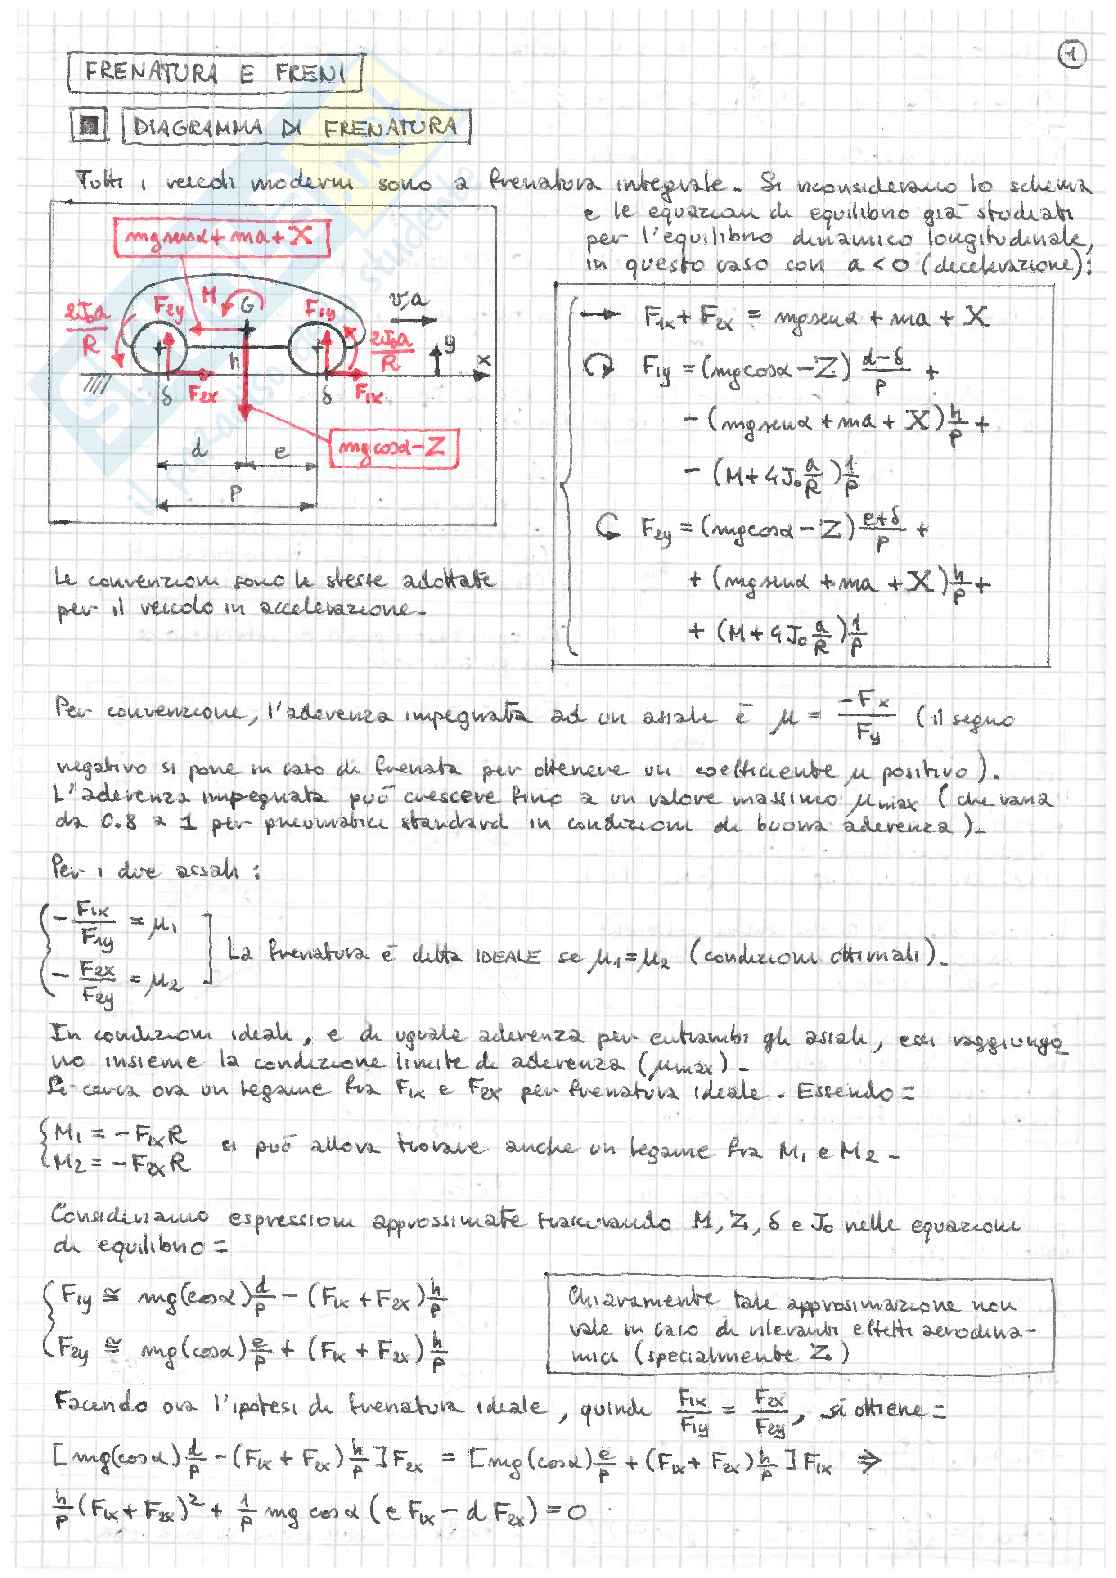 1
FRENATURA E FRENI
DIAGRAMMA DI FRENATURA
Tutti i veicoli moderni sono a frenatura integrale. Si riconsiderano lo schema
e le equazioni di equilibrio già studiati
per l'equilibrio dinamico longitudinale,
in questo caso con a < 0 (decelerazione):
mg senα + ma + X
M G v,a
F2y F1y
2J₀a/R 2J₀a/R
h y x
δ F2x δ F1x
mg cosα - Z
d e
P
→ F1x + F2x = mg senα + ma + X
F1y = (mg cosα - Z) (d-δ)/P +
- (mg senα + ma + X) h/P +
- (M + 4J₀ a/R) 1/P
F2y = (mg cosα - Z) (e+δ)/P +
+ (mg senα + ma + X) h/P +
+ (M + 4J₀ a/R) 1/P
Le convenzioni sono le stesse adottate
per il veicolo in accelerazione.
Per convenzione, l'aderenza impegnata ad un assale è μ = -Fx/Fy (il segno
negativo si pone in caso di frenata per ottenere un coefficiente μ positivo).
L'aderenza impegnata può crescere fino a un valore massimo μmax (che varia
da 0.8 a 1 per pneumatici standard in condizioni di buona aderenza).
Per i due assali:
- F1x/F1y = μ1
- F2x/F2y = μ2
La frenatura è detta IDEALE se μ1 = μ2 (condizioni ottimali).
In condizioni ideali, e di uguale aderenza per entrambi gli assali, essi raggiungo
no insieme la condizione limite di aderenza (μmax).
Si cerca ora un legame fra F1x e F2x per frenatura ideale. Essendo =
M1 = -F1xR
M2 = -F2xR
si può allora trovare anche un legame fra M1 e M2.
Consideriamo espressioni approssimate trascurando M, Z, δ e J₀ nelle equazioni
di equilibrio =
F1y ≅ mg(cosα) d/P - (F1x + F2x) h/P
F2y ≅ mg(cosα) e/P + (F1x + F2x) h/P
Chiaramente tale approssimazione non
vale in caso di rilevanti effetti aerodina-
mici (specialmente Z)
Facendo ora l'ipotesi di frenatura ideale, quindi F1x/F1y = F2x/F2y, si ottiene =
[mg(cosα) d/P - (F1x + F2x) h/P] F2x = [mg(cosα) e/P + (F1x + F2x) h/P] F1x ⇒
h/P (F1x + F2x)² + 1/P mg cosα (e F1x - d F2x) = 0